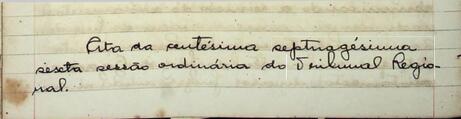 Acta da centésima septuagésima
sexta sessão ordinária do Tribunal Regio-
nal.